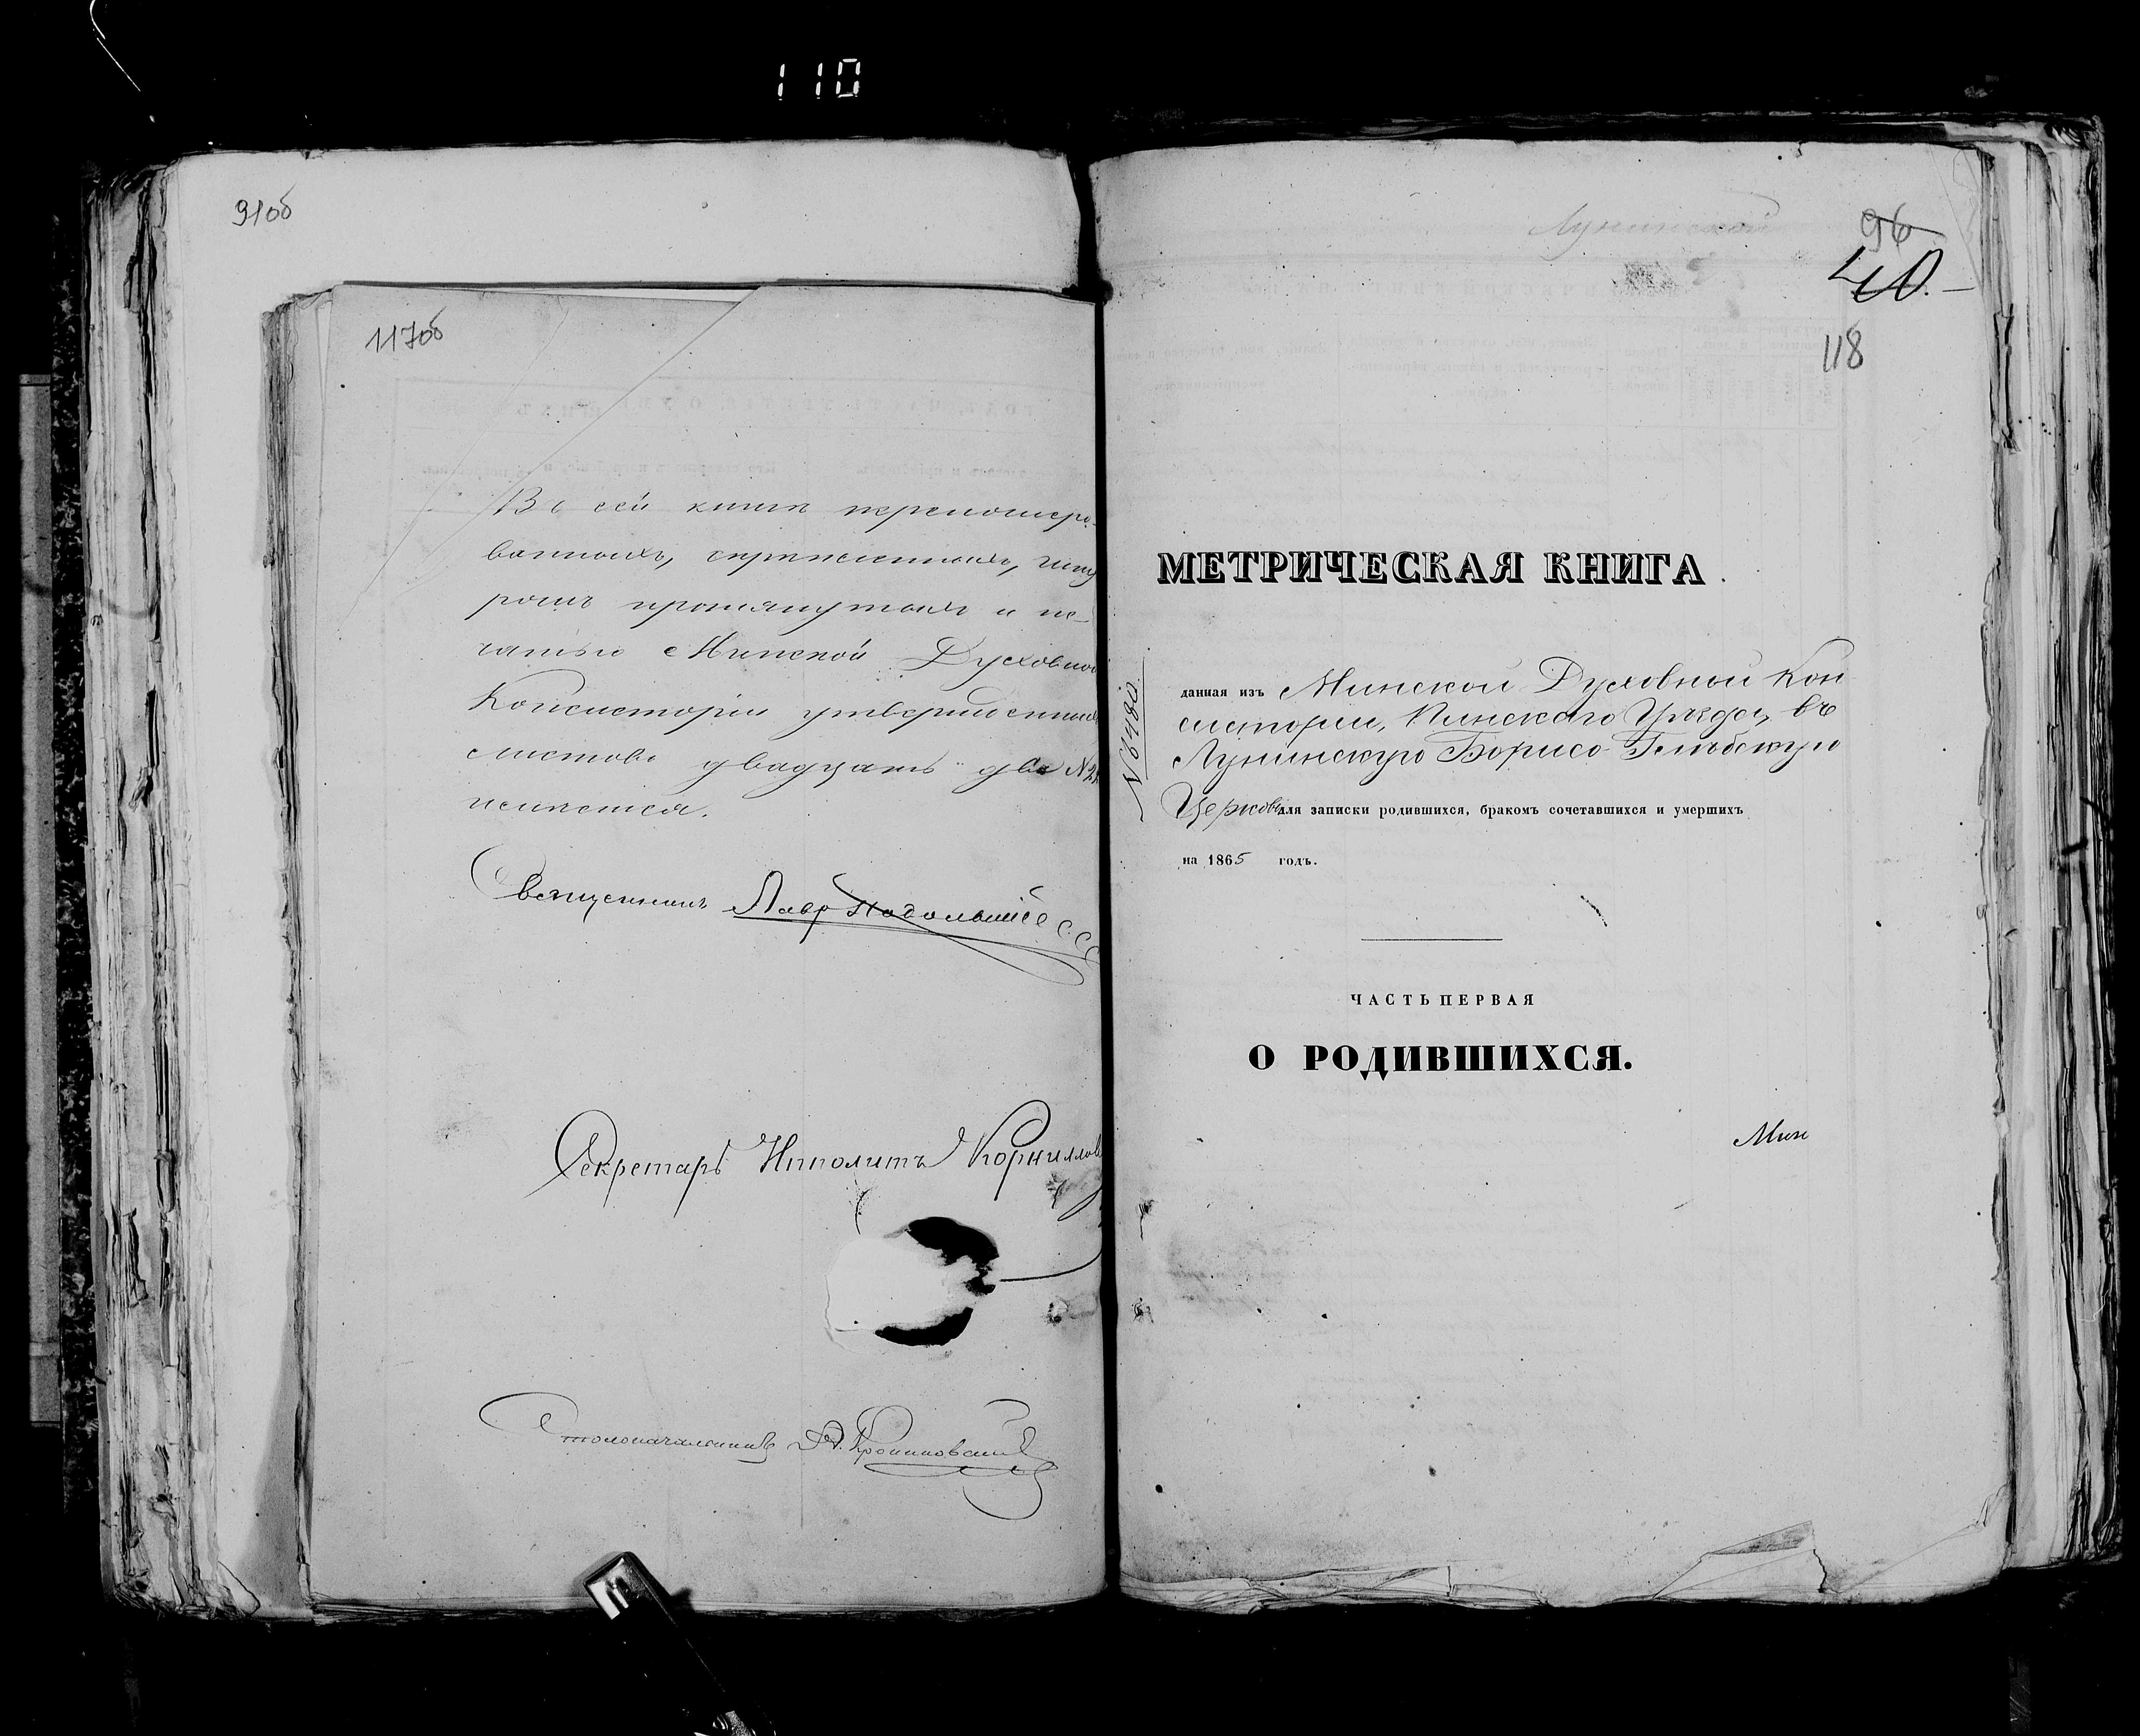 110
91об
117об
Въ сей книгѣ перенумеро-
ванныхъ, скрѣпленныхъ, шну
ромъ протянутыхъ и пе-
чатью Минской Духовной
Консисторіи утвержденныхъ
листовъ двадцать два №22
числится.
Священникъ Лавр
Секретарь Ипполитъ Корнилов
Столоначальникъ
Лунинской
96
40.
118
МЕТРИЧЕСКАЯ КНИГА
№ 6480
данная изъ Минской Духовной Кон
систоріи, Пинскаго Уѣзда, въ
Лунинскую Борисо-Глѣбскую
Церковь для записки родившихся, бракомъ сочетавшихся и умершихъ
на 1865 годъ.
ЧАСТЬ ПЕРВАЯ
О РОДИВШИХСЯ.
Мин